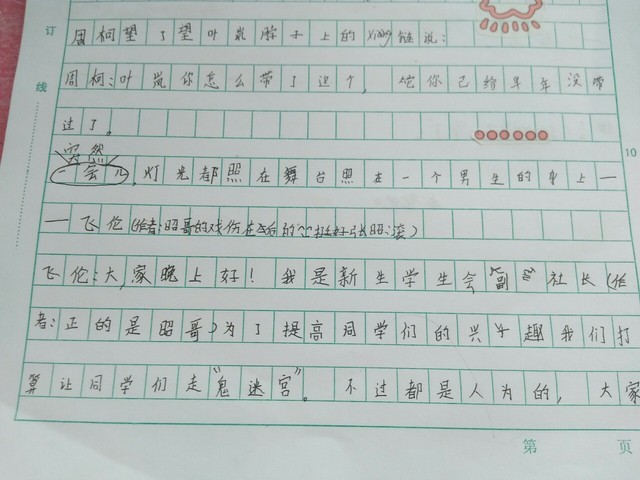 订
周柯望了望叶岚脖子上的xiàng链说:
周柯:叶岚你怎么带了这个,你已经半年没带
线
过了。
突然
一会儿,灯光都照在舞台照在一个男生的身上一
10
一飞伦(作者:昭哥的戏份在后的
飞伦:大家晚上好!我是新生学生会"副"社长(作
者:正的是昭哥)为了提高同学们的兴趣我们打
算让同学们走"鬼迷宫"。不过都是人为的,大家
第 页